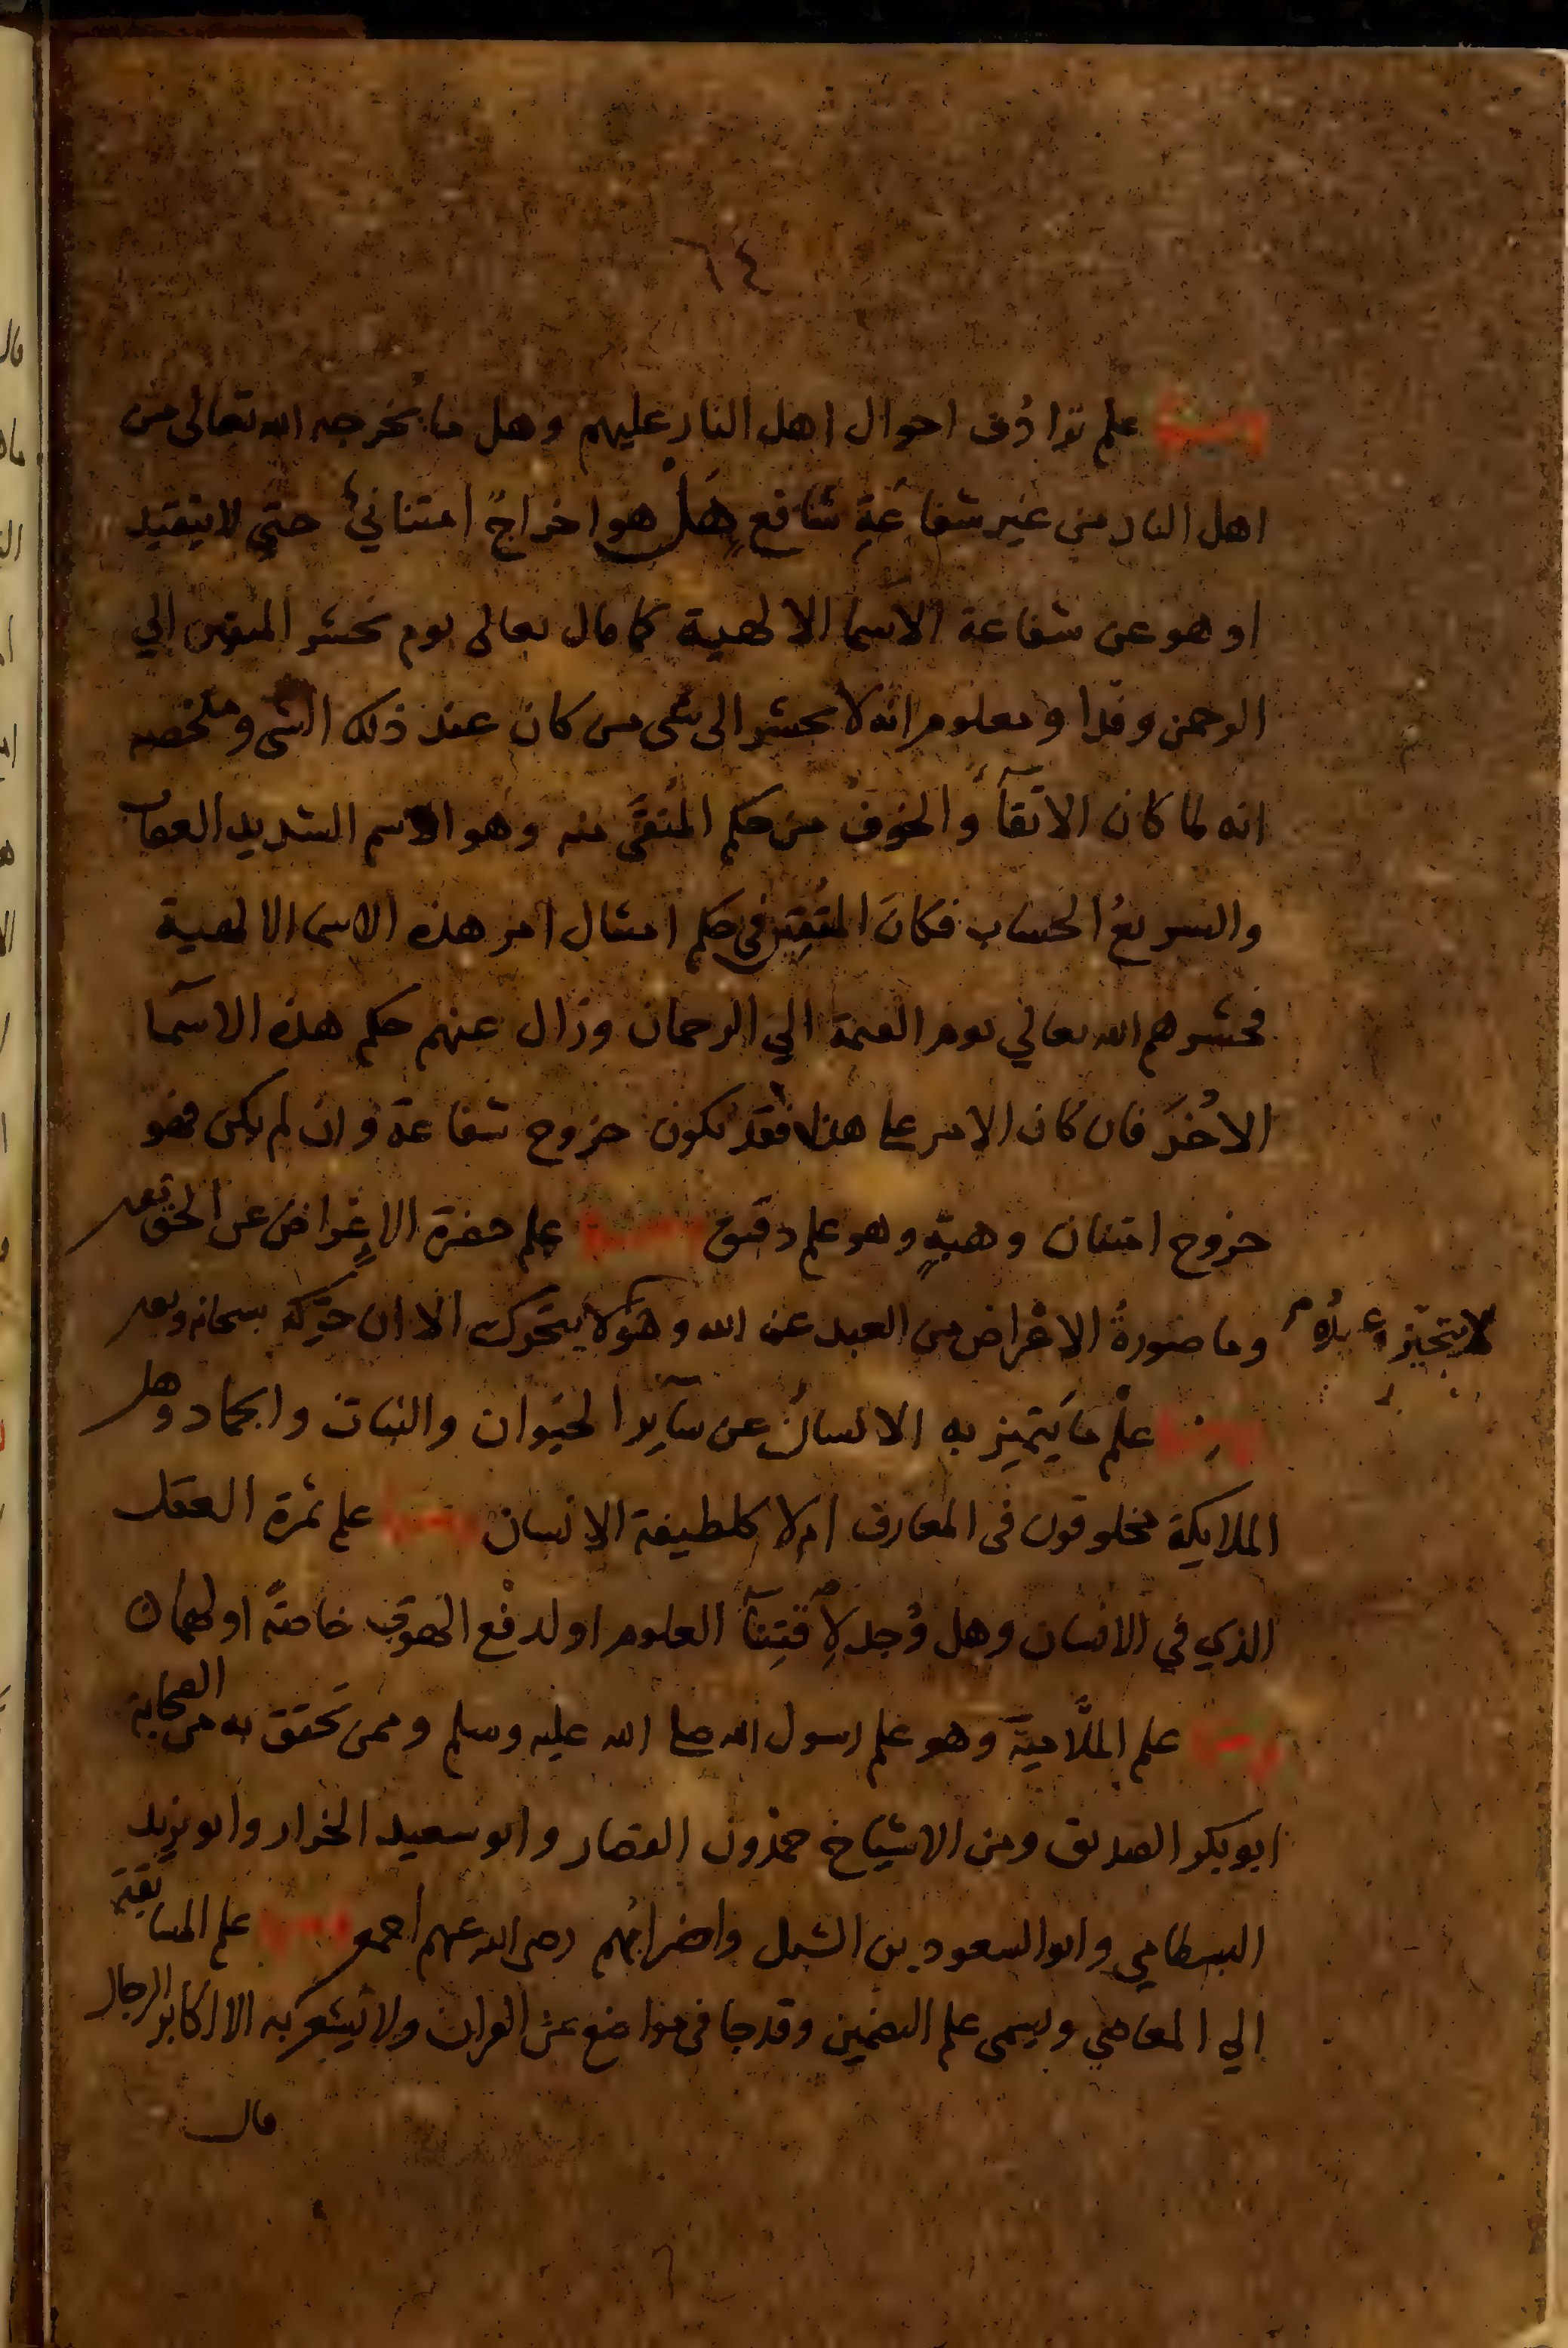 ٦٤
ومنها علم ترادف احوال اهل النار عليهم وهل ما يخرجه الله تعالى من
اهل النار من غير شفاعة شافع هل هو اخراجٌ امتنانيٌ حتي لا يتقيد
او هو عن شفاعة الاسما الالهية كما قال تعالى يوم نحشر المتقين الي
الرحمن وفدا ومعلوم انه لا يحشر الى شى من كان عند ذلك الشى وملخصه
انه لما كان الاتقآ والخوف من حكم المُتقَى منه وهو الاسم الشديد العقاب
والسريعُ الحساب فكان المُتقِين فى حكم امتثال امر هذه الاسما الالهية
فحشرهم الله تعالي يوم القيمة الي الرحمان وزال عنهم حكم هذه الاسمآ
الاُخَر فان كان الامر على هذا فقد يكون خروج شفاعة وان لم يكن فهو
خروج امتنان وهبةٍ وهو علم دقيق ومنها علم حضرة الاعراض عن الحق تعـ
وما صورةُ الاعراض من العبد عن الله وهو لا يتحرك الا ان حرّكه سبحانه وتعـ
لا يتحيز
ومنها علْم ما يَتميز به الانسانُ عن سآير الحيوان والنبات والجماد وهل
الملايكة مخلوقون فى المعارف ام لا كلطيفة الانسان ومنها علم ثمرة العقل
الذي في الانسان وهل وُجد لِاقتِنآ العلوم او لدفْع الهوى خاصةً او لهما
ومنها علم الملّامية وهو علم رسول الله صلى الله عليه وسلم وممن تحقق به من الصحابة
ابو بكر الصديق ومن الاشياخ حمدون القصار وابو سعيد الخراز وابو يزيد
البسطامي وابو السعود بن الشبل واضرابُهم رضى الله عنهم اجمع ومنها علم المسابقة
الي المعاصي ويسمى علم التضمين وقد جا فى مواضع من القران ولا يَشعر به الا اكابر الرجال
قال